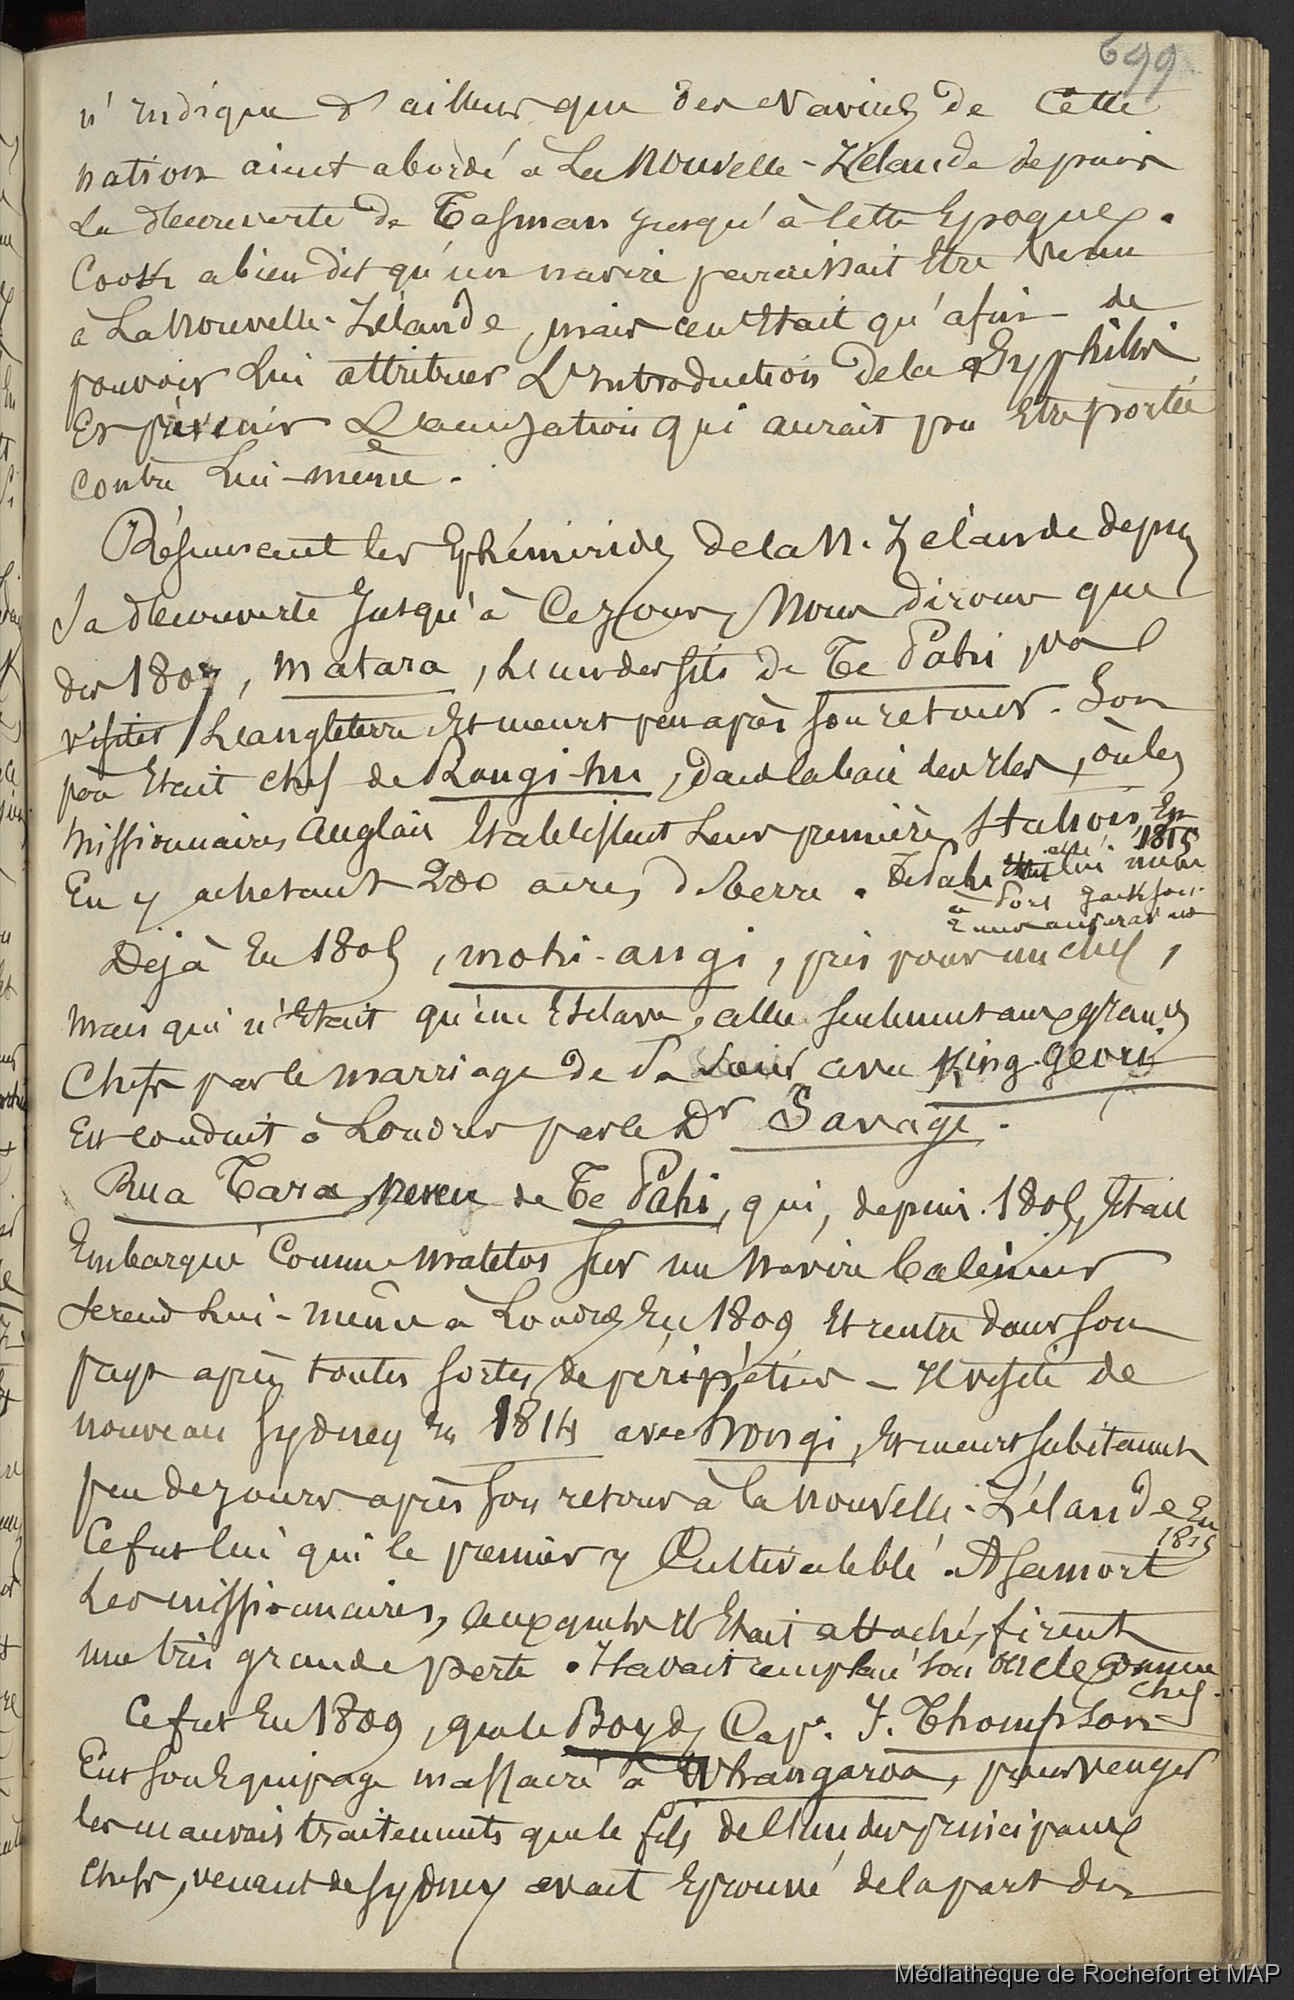 699
n'indique d'ailleurs que des navires de cette
nation aient abordé à La Nouvelle-Zélande depuis
La découverte de Tasman jusqu'à cette Epoque.
Cook a bien dit qu'un navire paraissait être venu
à La Nouvelle-Zélande, mais ce n'était qu'afin de
pouvoir Lui attribuer L'introduction de la Syphilis
Et prévenir L'accusation qui aurait pu Etre portée
contre Lui-même.
Résumant les Ephémérides de la N. Zélande depuis
Sa découverte Jusqu'à ce jour, Nous dirons que
dès 1807, Matara, L'un des fils de Te Pahi, va
visiter L'angleterre Et meurt peu après son retour. Son
père Etait chef de Rangi-hu, dans la baie des Iles, où les
Missionnaires Anglais Etablissent Leur première Station, En
1815
En y achetant 200 acres de terre. Te Pahi était allé lui même
à Port Jackson
Déjà En 1805, Mohi-angi, pris pour un chef,
mais qui n'Etait qu'un Esclave, allié seulement aux grands
Chefs par le marriage de Sa Soeur avec King-Georges
Est conduit à Londres par le Dr Savage.
Rua Tara neveu de Te Pahi, qui, depuis 1805, Etait
Embarqué Comme matelot sur un Navire baleinier
Se rend Lui-même à Londres En 1809 Et rentre dans Son
pays après toutes sortes de péripéties – Il visite de
nouveau Sydney en 1814 avec Hongi, Et meurt subitement
peu de jours après son retour à la Nouvelle-Zélande En
1815
Ce fut lui qui le premier y Cultiva le blé. A sa mort
Les missionnaires, auxquels Il Etait attaché, firent
une très grande perte. Il avait remplacé son oncle comme
chef.
Ce fut En 1809, que le Boyd, Cap. J. Thompson
Eut son Equipage massacré à Whangaroa, pour venger
les mauvais traitements que le fils de l'un des principaux
chefs, venant de Sydney avait Eprouvé de la part du
Médiathèque de Rochefort et MAP